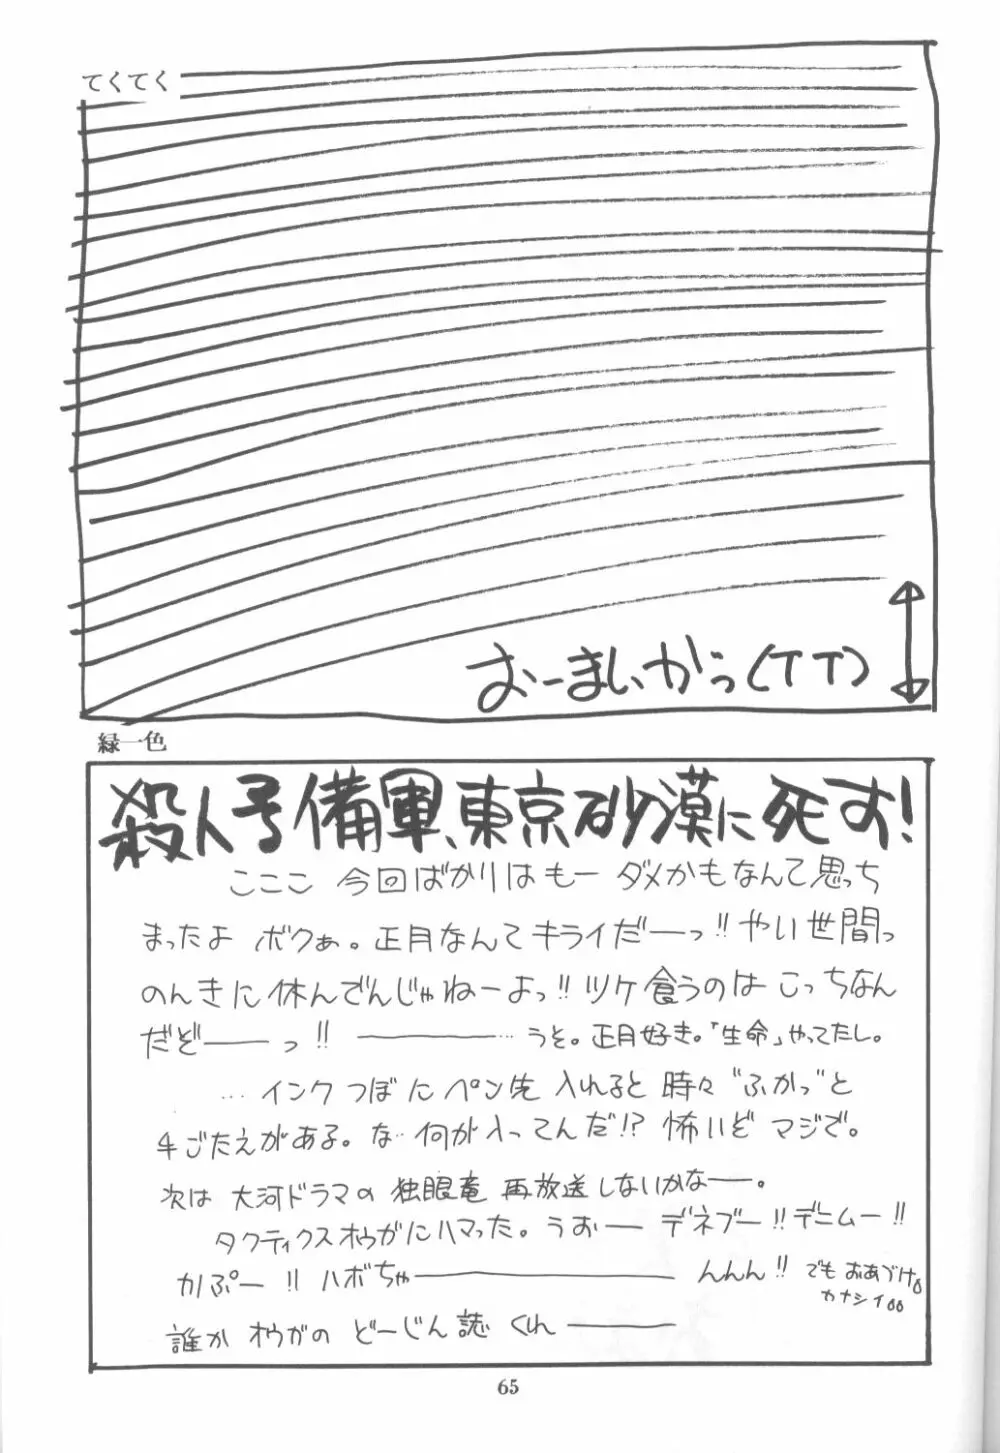 てくてく
おーまいがっ(TT)
緑一色
殺人予備軍、東京砂漠に死す!
こここ 今回ばかりはもー ダメかもなんて思っち
まったよ ボクぁ。正月なんてキライだーっ!!やい世間っ
のんきに休んでんじゃねーよっ!!ツケ食うのは こっちなん
だぞ――っ!! ――――…うそ。正月好き。「生命」やってたし。
…インクつぼにペン先 入れると 時々 “ふかっ”と
手ごたえがある。な…何が入ってんだ!? 怖いど マジで。
次は 大河ドラマの 独眼竜 再放送しないかなー。
タクティクスオウガにハマった。うおー デネブー!!デニムー!!
かぷー!! ハボちゃ――――んんん!! でも おあづけ。
カナシイ。。
誰か オウガの どーじん誌 くれ――
65